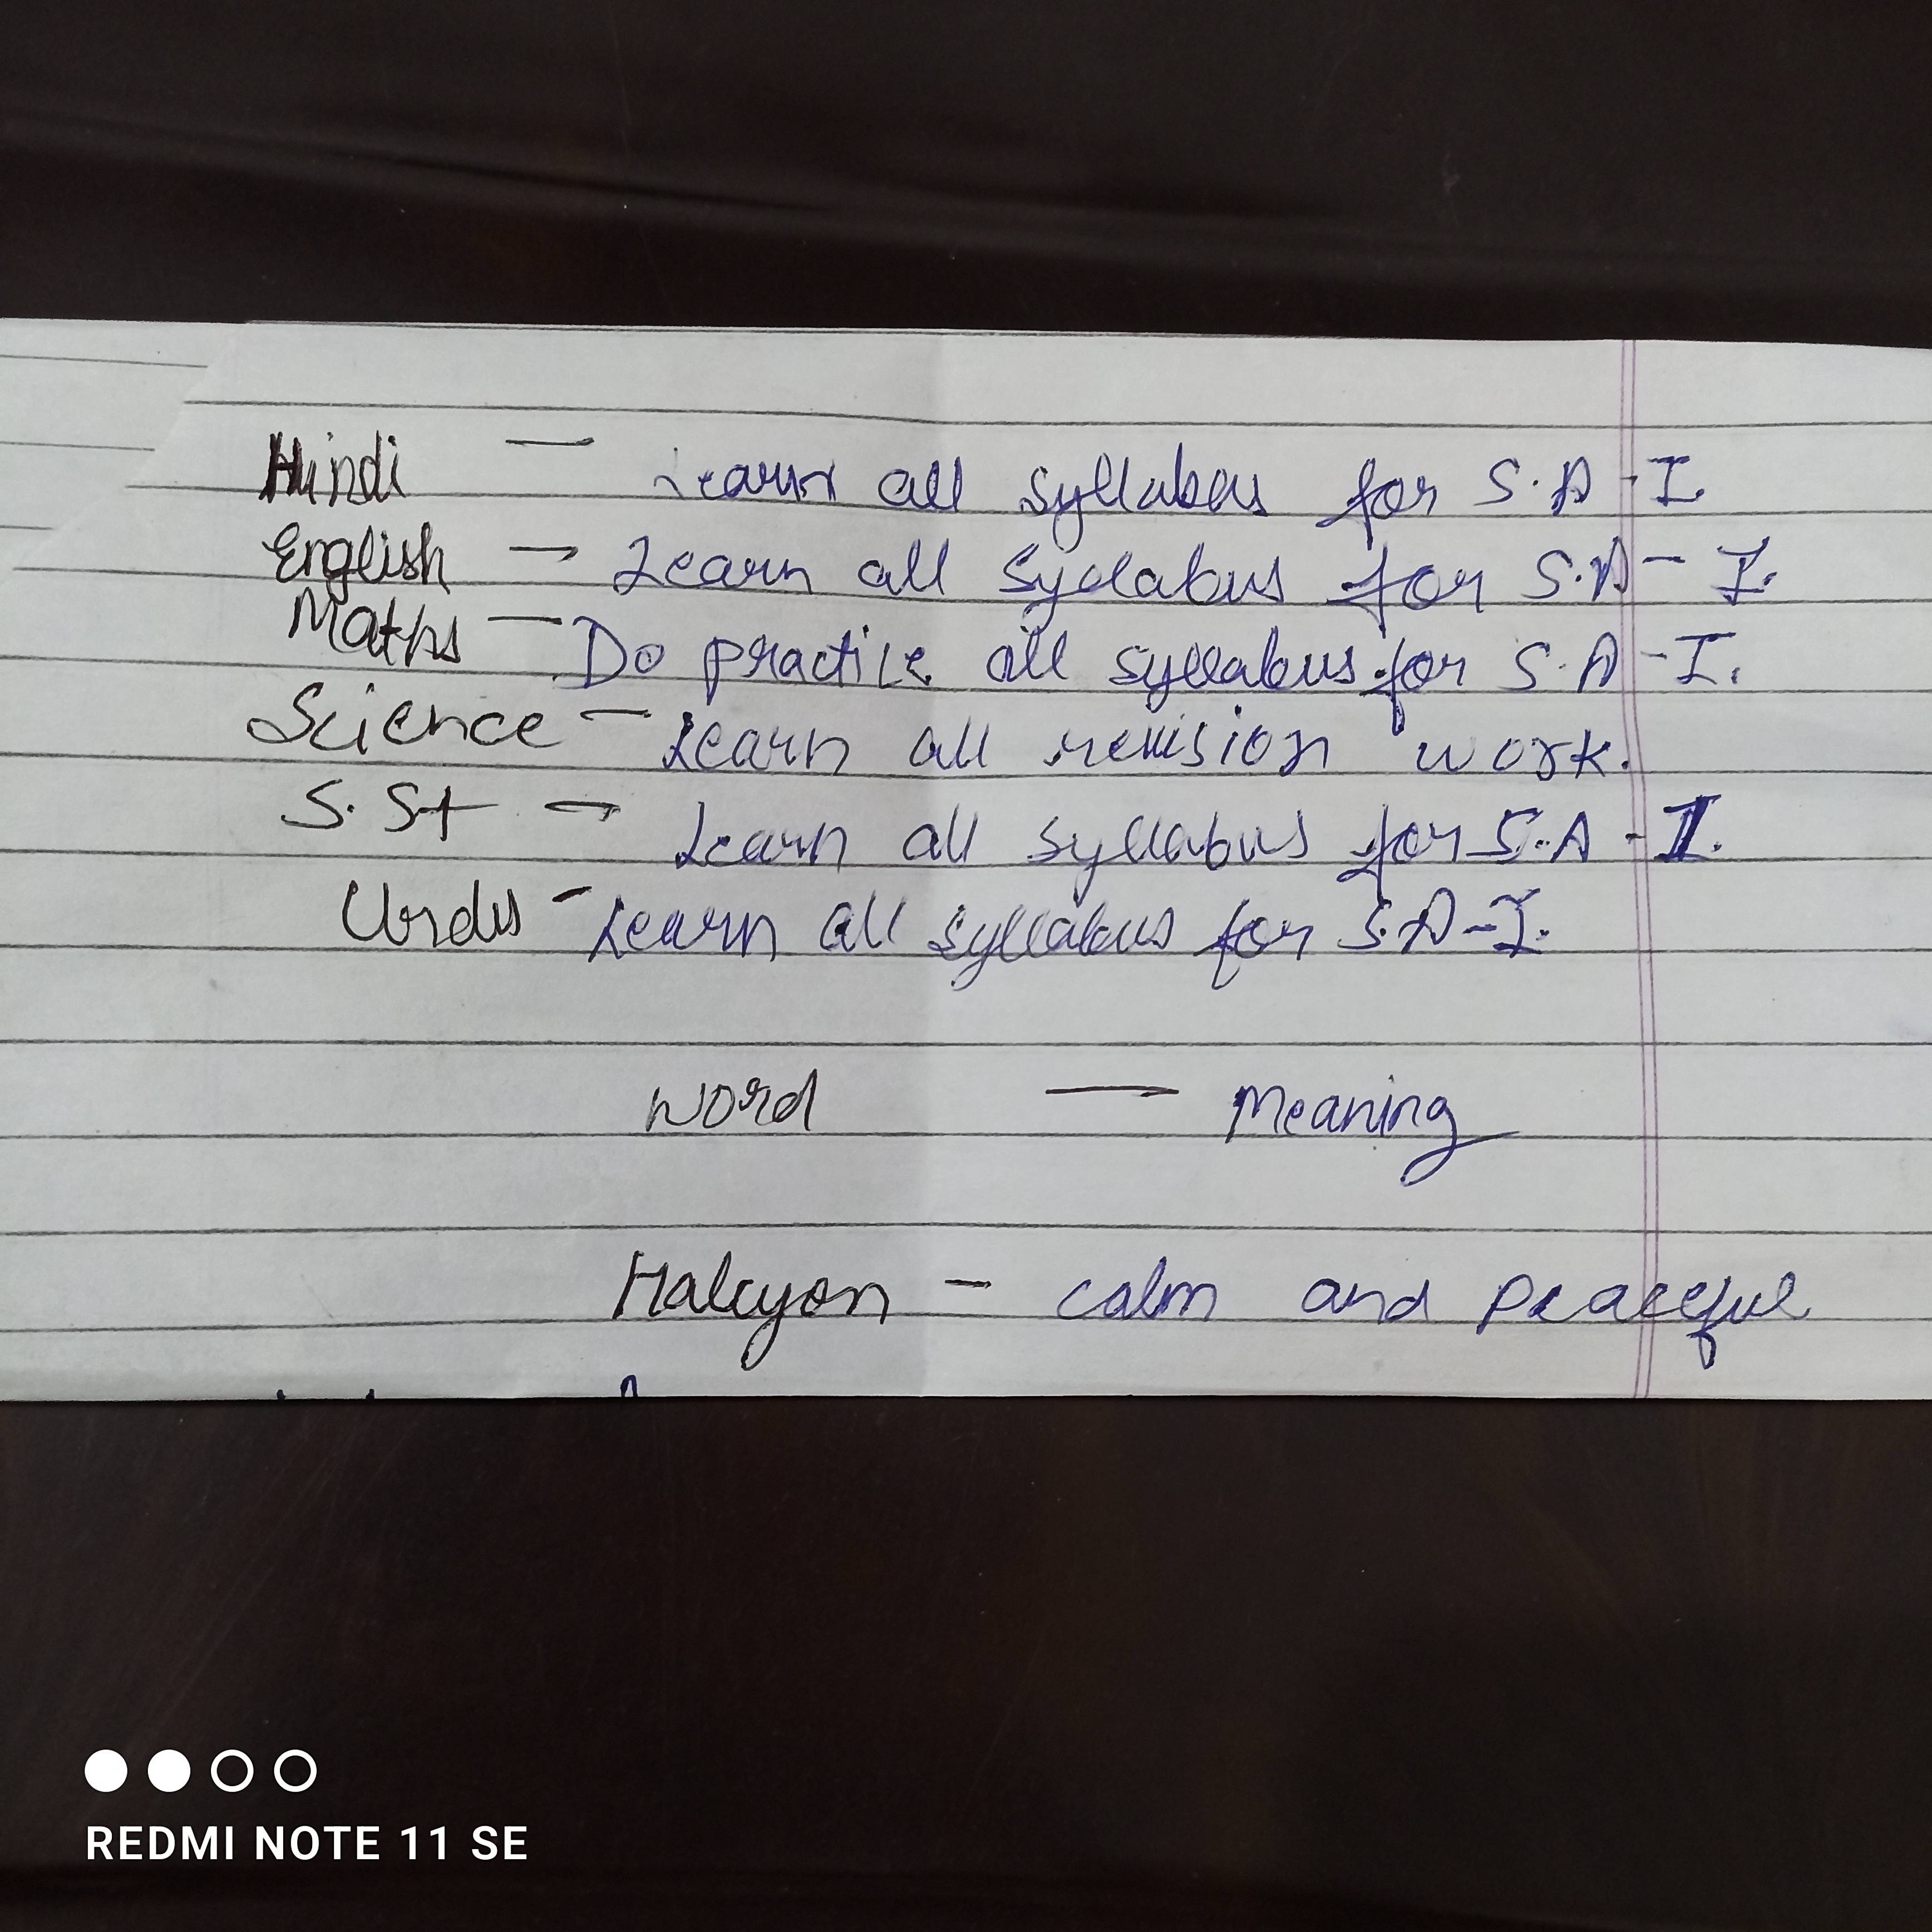 Hindi — Learn all syllabus for S.A - I
English — Learn all syllabus for S.A - I.
Maths — Do practice all syllabus for S.A - I.
Science — Learn all revision work.
S.St — Learn all syllabus for S.A - I.
Urdu - Learn all syllabus for S.A - I.
Word — Meaning
Halcyon - calm and peaceful
REDMI NOTE 11 SE